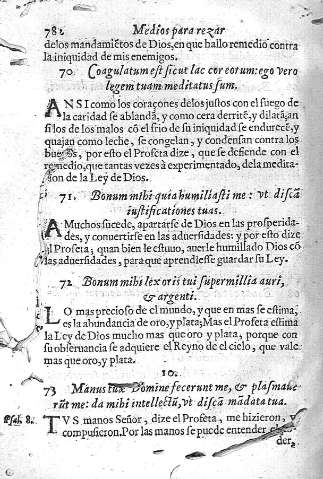 782 Medios para rezar
delos mandamiẽtos de Dios, en que hallo remedio contra
la iniquidad de mis enemigos.
70 Coagulatum est sicut lac cor eorum: ego vero
legem tuam meditatus sum.
ANSI como los coraçones delos justos con el fuego de
la caridad se ablandã, y como cera derritẽ, y dilatã, an
si los de los malos cõ el frio de su iniquidad se endurecẽ, y
quajan como leche, se congelan, y condensan contra los
por esto el Profeta dize, que se defiende con el
remedio, que tantas vezes à experimentado, de la medita-
cion de la Ley de Dios.
71. Bonum mihi quia humiliasti me: vt discã
iustificationes tuas.
A Muchos sucede, apartarse de Dios en las prosperida-
des, y conuertirse en las aduersidades: y por esto dize
el Profeta; quan bien le estuuo, auerle humillado Dios cõ
las aduersidades, para que aprendiesse guardar su Ley.
72 Bonum mihi lex oris tui super millia auri,
& argenti.
LO mas precioso de el mundo, y que en mas se estima,
es la abundancia de oro, y plata; Mas el Profeta estima
la Ley de Dios mucho mas que oro y plata, porque con
su obseruancia se adquiere el Reyno de el cielo, que vale
mas que oro, y plata.
10.
73 Manus tuæ Domine fecerunt me, & plasmaue
rũt me: da mihi intellectũ, vt discã mãdata tua.
Psal. 8. TVS manos Señor, dize el Profeta, me hizieron, y
compusieron. Por las manos se puede entender el
der,